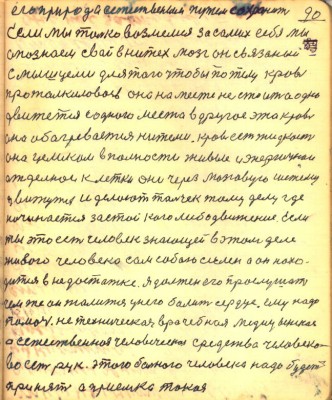 его природа естественый путем сохранит 90
Если мы только возмемся за самих себя мы
опознаем свай внитех мозг он связаный
смышцеми для того чтобы потем кровь
проталкивовась она на месте не стоит а одно
двитется содного места в другое эта кровь
она обогревается нитеми. кровь ест жидкост
она целиком вполности живые и энергичной
отделеное клетки они через мозговую
движутся и делоют толчек тому делу где
начинается застой какого либо движение. Если
ты это ест человек знающей в этом деле
живого человека сам собою силен а он нахо-
дится в недостатке. Я должен его прослушать
чем же он то у него балит сердце. ему надо
помоч. не техническая врачебная медицынская
а естественная человеческа средства человека
во ест рук. этого болного человека надо будет
принят а приемка токая